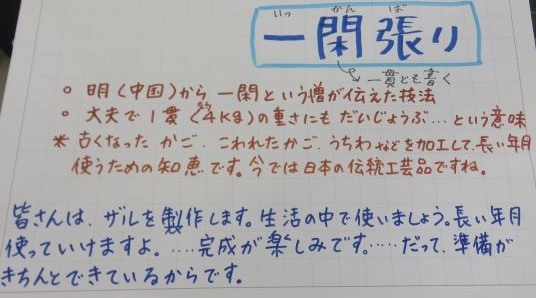 いっ かん ば
一閑張り
一貫とも書く
○ 明(中国)から 一閑という僧が伝えた技法
○ 大夫で1貫(約4kg)の重さにも だいじょうぶ…という意味
* 古くなった かご、こわれたかご、うちわなどを加工して、長い年月
使うための知恵です。今では日本の伝統工芸品ですね。
皆さんは、ザルを製作します。生活の中で使いましょう。長い年月
使っていけますよ。……完成が楽しみです。……だって、準備が
きちんとできているからです。